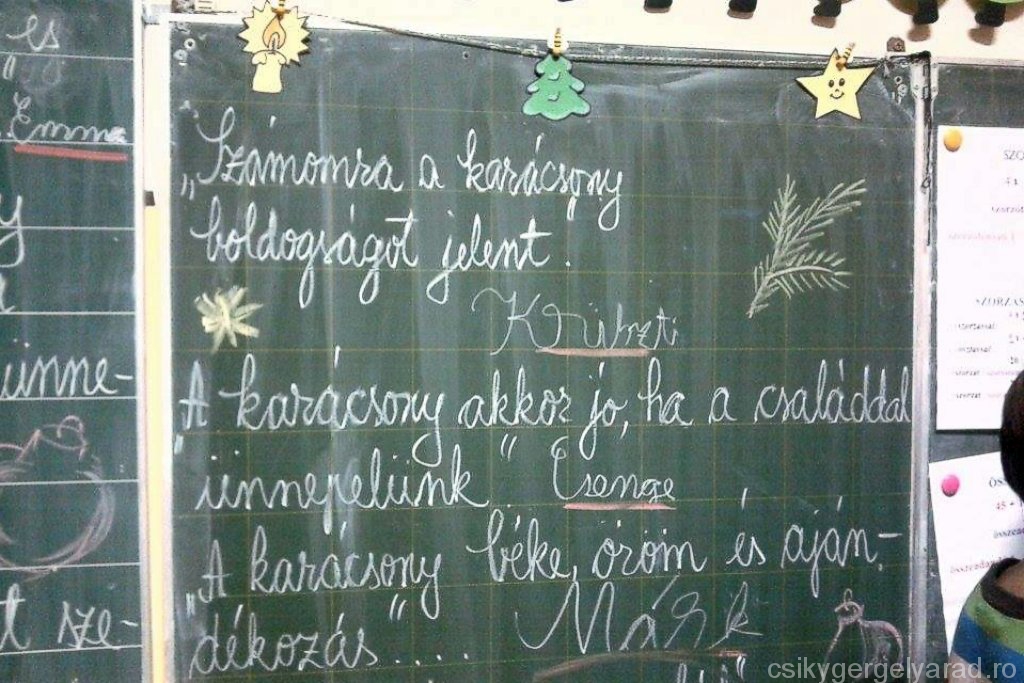 és
Emma
ünne-
t sze-
„Számomra a karácsony
boldogságot jelent."
Kriszti
„A karácsony akkor jó, ha a családdal
ünnepelünk." Csenge
„A karácsony béke, öröm és aján-
dékozás...." Márk
SZORZÁS
csikygergelyarad.ro